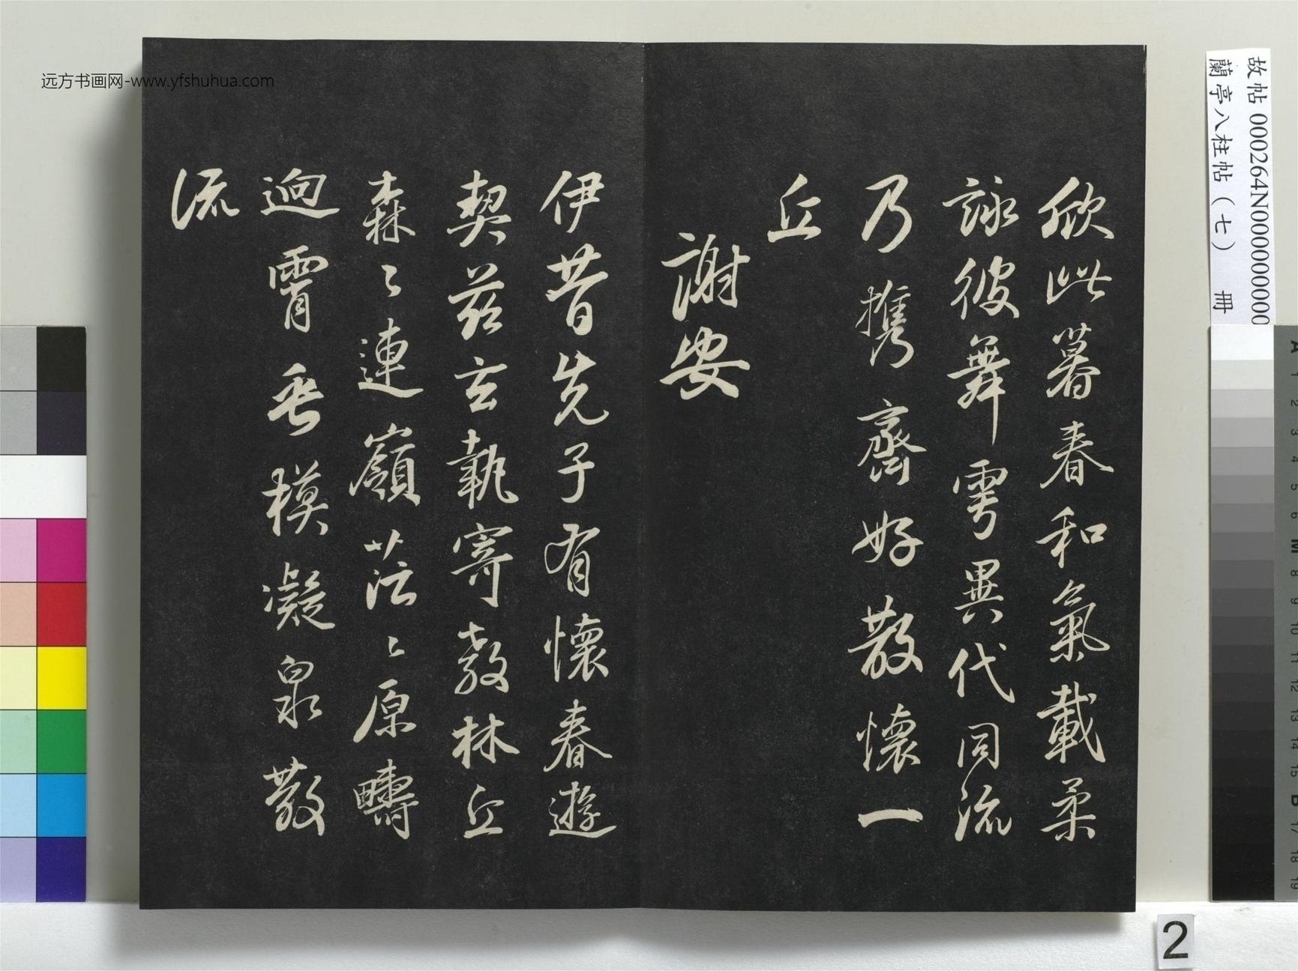 远方书画网-www.yfshuhua.com
故帖 000264N000000000
蘭亭八柱帖（七） 冊
欣此暮春和氣載柔
詠彼舞雩異代同流
乃携齊好散懷一
丘
謝安
伊昔先子有懷春遊
契茲言執寄敖林丘
森〻連嶺茫〻原疇
迥霄垂模凝泉散
流
2